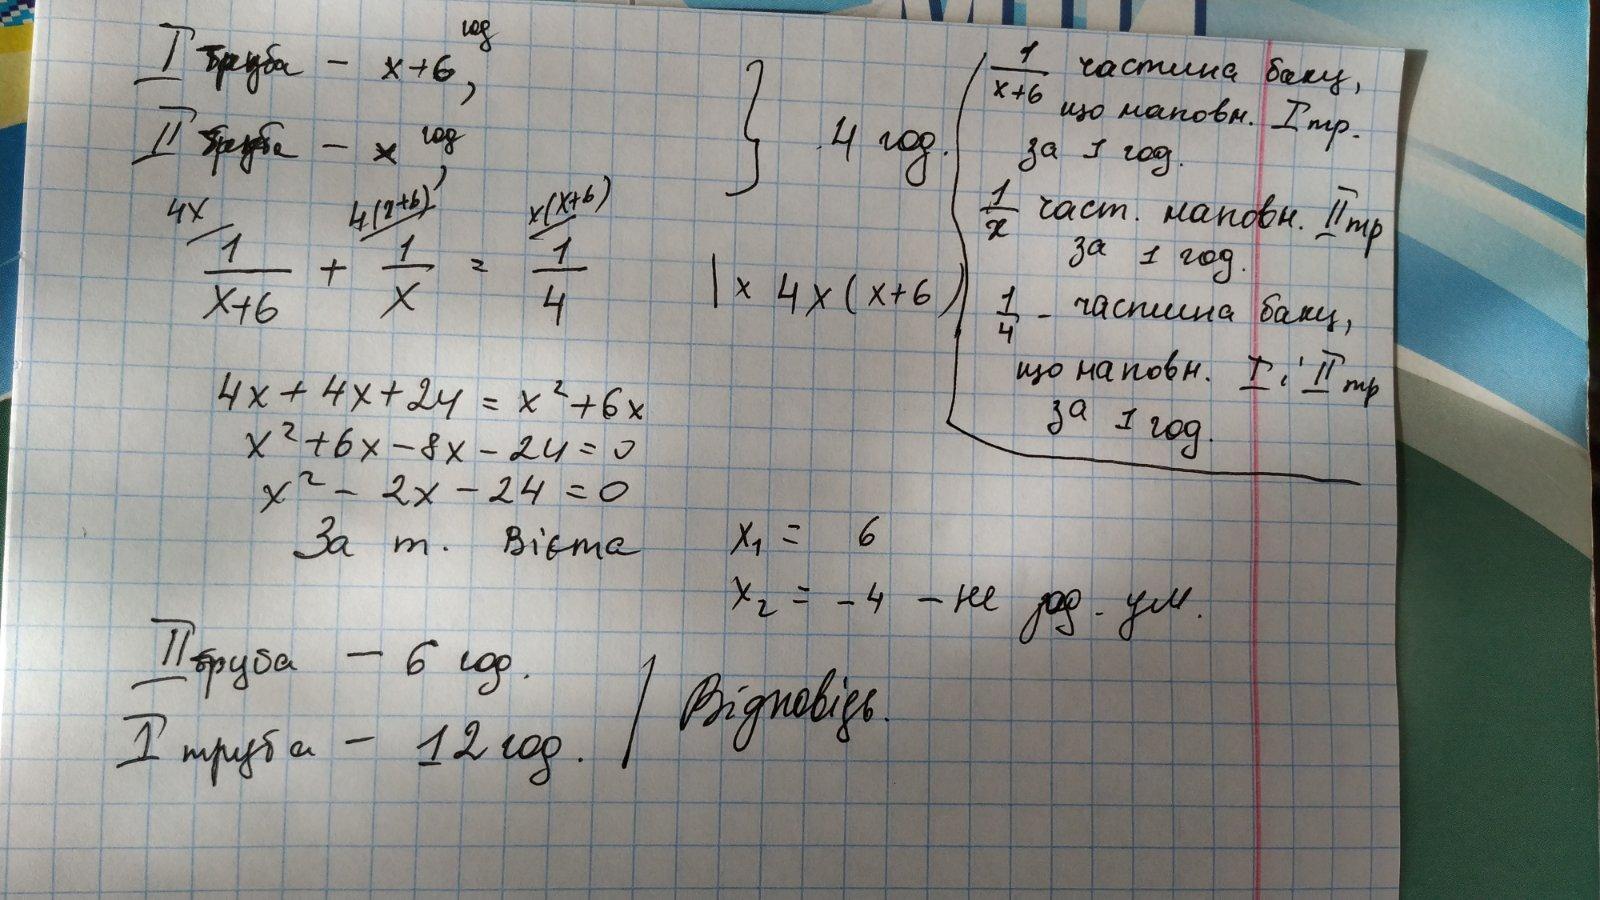 I труба - x+6 год,
II труба - x год,
} 4 год.
4x/ 4(x+6)/ x(x+6)/
1/(x+6) + 1/x = 1/4 | x 4x(x+6)
4x + 4x + 24 = x² + 6x
x² + 6x - 8x - 24 = 0
x² - 2x - 24 = 0
За т. Вієта
x₁ = 6
x₂ = -4 - не зад. ум.
II труба - 6 год.
I труба - 12 год.
Відповідь.
1/(x+6) частина баку,
що наповн. I тр.
за 1 год.
1/x част. наповн. II тр
за 1 год.
1/4 - частина баку,
що наповн. I і II тр
за 1 год.